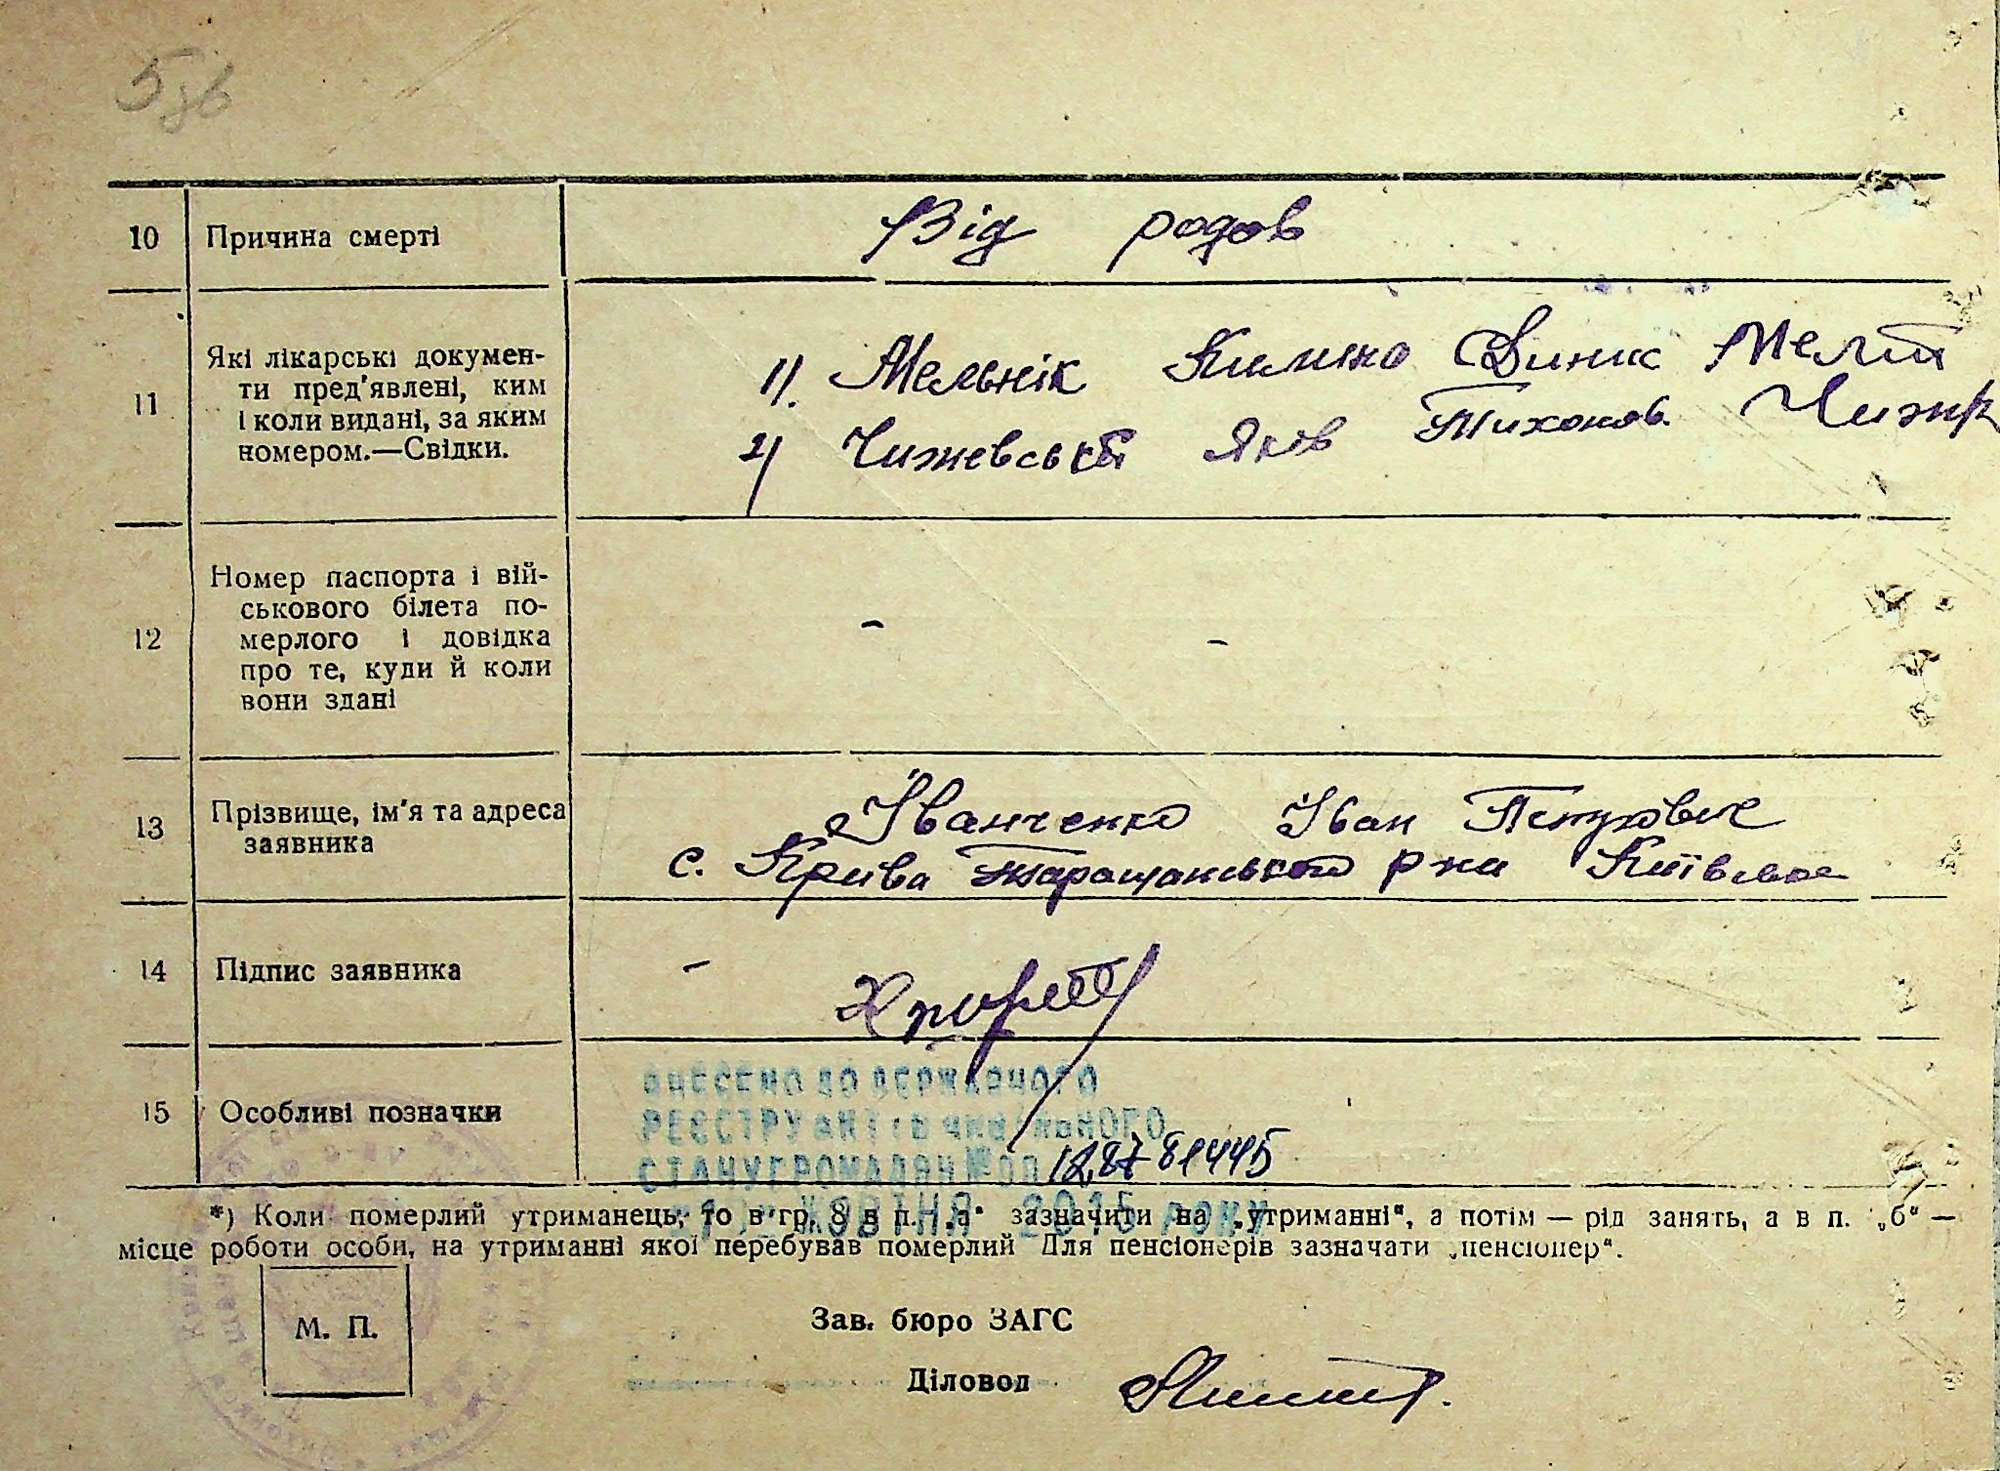 5зв
10 Причина смерті Від родов
11 Які лікарські докумен-
ти пред'явлені, ким
і коли видані, за яким
номером.—Свідки.
1). Мельнік
2) Чижевській Яків Тихонов.
12 Номер паспорта і вій-
ськового білета по-
мерлого і довідка
про те, куди й коли
вони здані
- -
13 Прізвище, ім'я та адреса
заявника
Іванченко Іван Петрович
с. Крива Таращанського р на Київської
14 Підпис заявника -
15 Особливі позначки
ВНЕСЕНО ДО ДЕРЖАВНОГО
РЕЄСТРУ АКТІВ ЦИВІЛЬНОГО
СТАНУ ГРОМАДЯН № 00128781445
ЖОВТНЯ 2015 РОКУ
*) Коли померлий утриманець, то в гр. 8 в п. „а“ зазначити на „утриманні“, а потім — рід занять, а в п. „б“ —
місце роботи особи, на утриманні якої перебував померлий Для пенсіонерів зазначати „пенсіонер“.
М. П.
Зав. бюро ЗАГС
Діловод